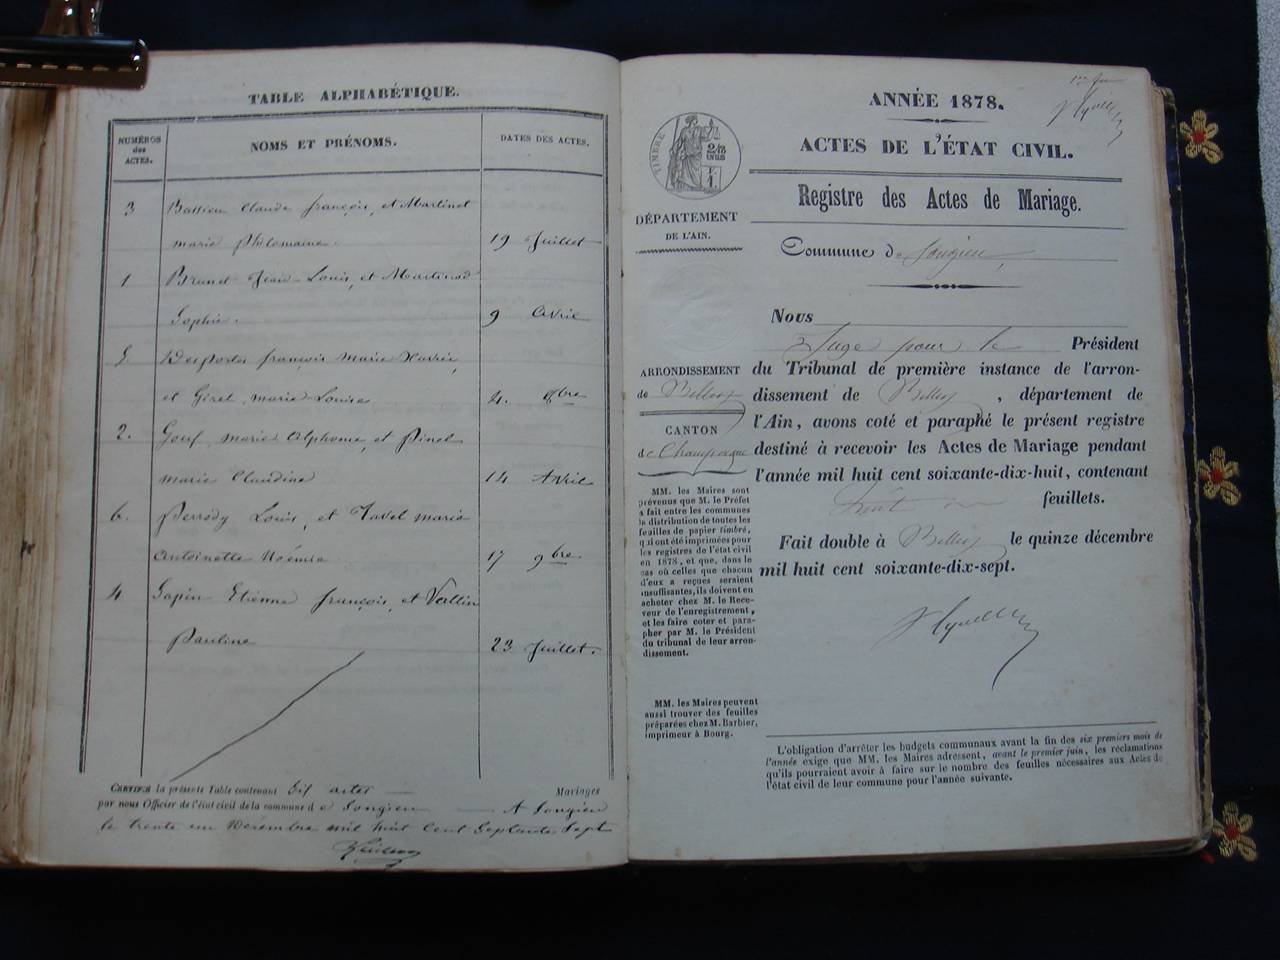 TABLE ALPHABÉTIQUE.
NUMÉROS des ACTES.
NOMS ET PRÉNOMS.
DATES DES ACTES.
3 Claude françois, et Martinet
marie philomaine. 19 Juillet
1 Brunet Jean Louis, et
Sophie. 9 Avril
5 Desportes françois marie
et Giret marie Louise 2. 8bre
2. marie alphonse, et Pinel
marie Claudine 14 Avril
6. Perrody Louis, et Tavel marie
antoinette Noémie 17 9bre
4 Gapin Etienne françois, et
Pauline 23 Juillet.
CERTIFIÉ la présente Table contenant Six actes Mariages
par nous Officier de l'état civil de la commune d e Songieu A Songieu
le trente un Décembre mil huit Cent Septante Sept
ANNÉE 1878.
ACTES DE L'ÉTAT CIVIL.
Registre des Actes de Mariage.
TIMBRE
DÉPARTEMENT
DE L'AIN.
Commune de Songieu
Nous
Juge pour le Président
du Tribunal de première instance de l'arron-
dissement de Belley, département de
l'Ain, avons coté et paraphé le présent registre
destiné à recevoir les Actes de Mariage pendant
l'année mil huit cent soixante-dix-huit, contenant
huit feuillets.
Fait double à Belley le quinze décembre
mil huit cent soixante-dix-sept.
ARRONDISSEMENT
de Belley
CANTON
de Champagne
MM. les Maires sont
prévenus que M. le Préfet
a fait entre les communes
la distribution de toutes les
feuilles de papier timbré,
qui ont été imprimées pour
les registres de l'état civil
en 1878, et que, dans le
cas où celles que chacun
d'eux a reçues seraient
insuffisantes, ils doivent en
acheter chez M. le Rece-
veur de l'enregistrement,
et les faire coter et para-
pher par M. le Président
du tribunal de leur arron-
dissement.
MM. les Maires peuvent
aussi trouver des feuilles
préparées chez M. Barbier,
imprimeur à Bourg.
L'obligation d'arrêter les budgets communaux avant la fin des six premiers mois de
l'année exige que MM. les Maires adressent, avant le premier juin, les réclamations
qu'ils pourraient avoir à faire sur le nombre des feuilles nécessaires aux Actes de
l'état civil de leur commune pour l'année suivante.